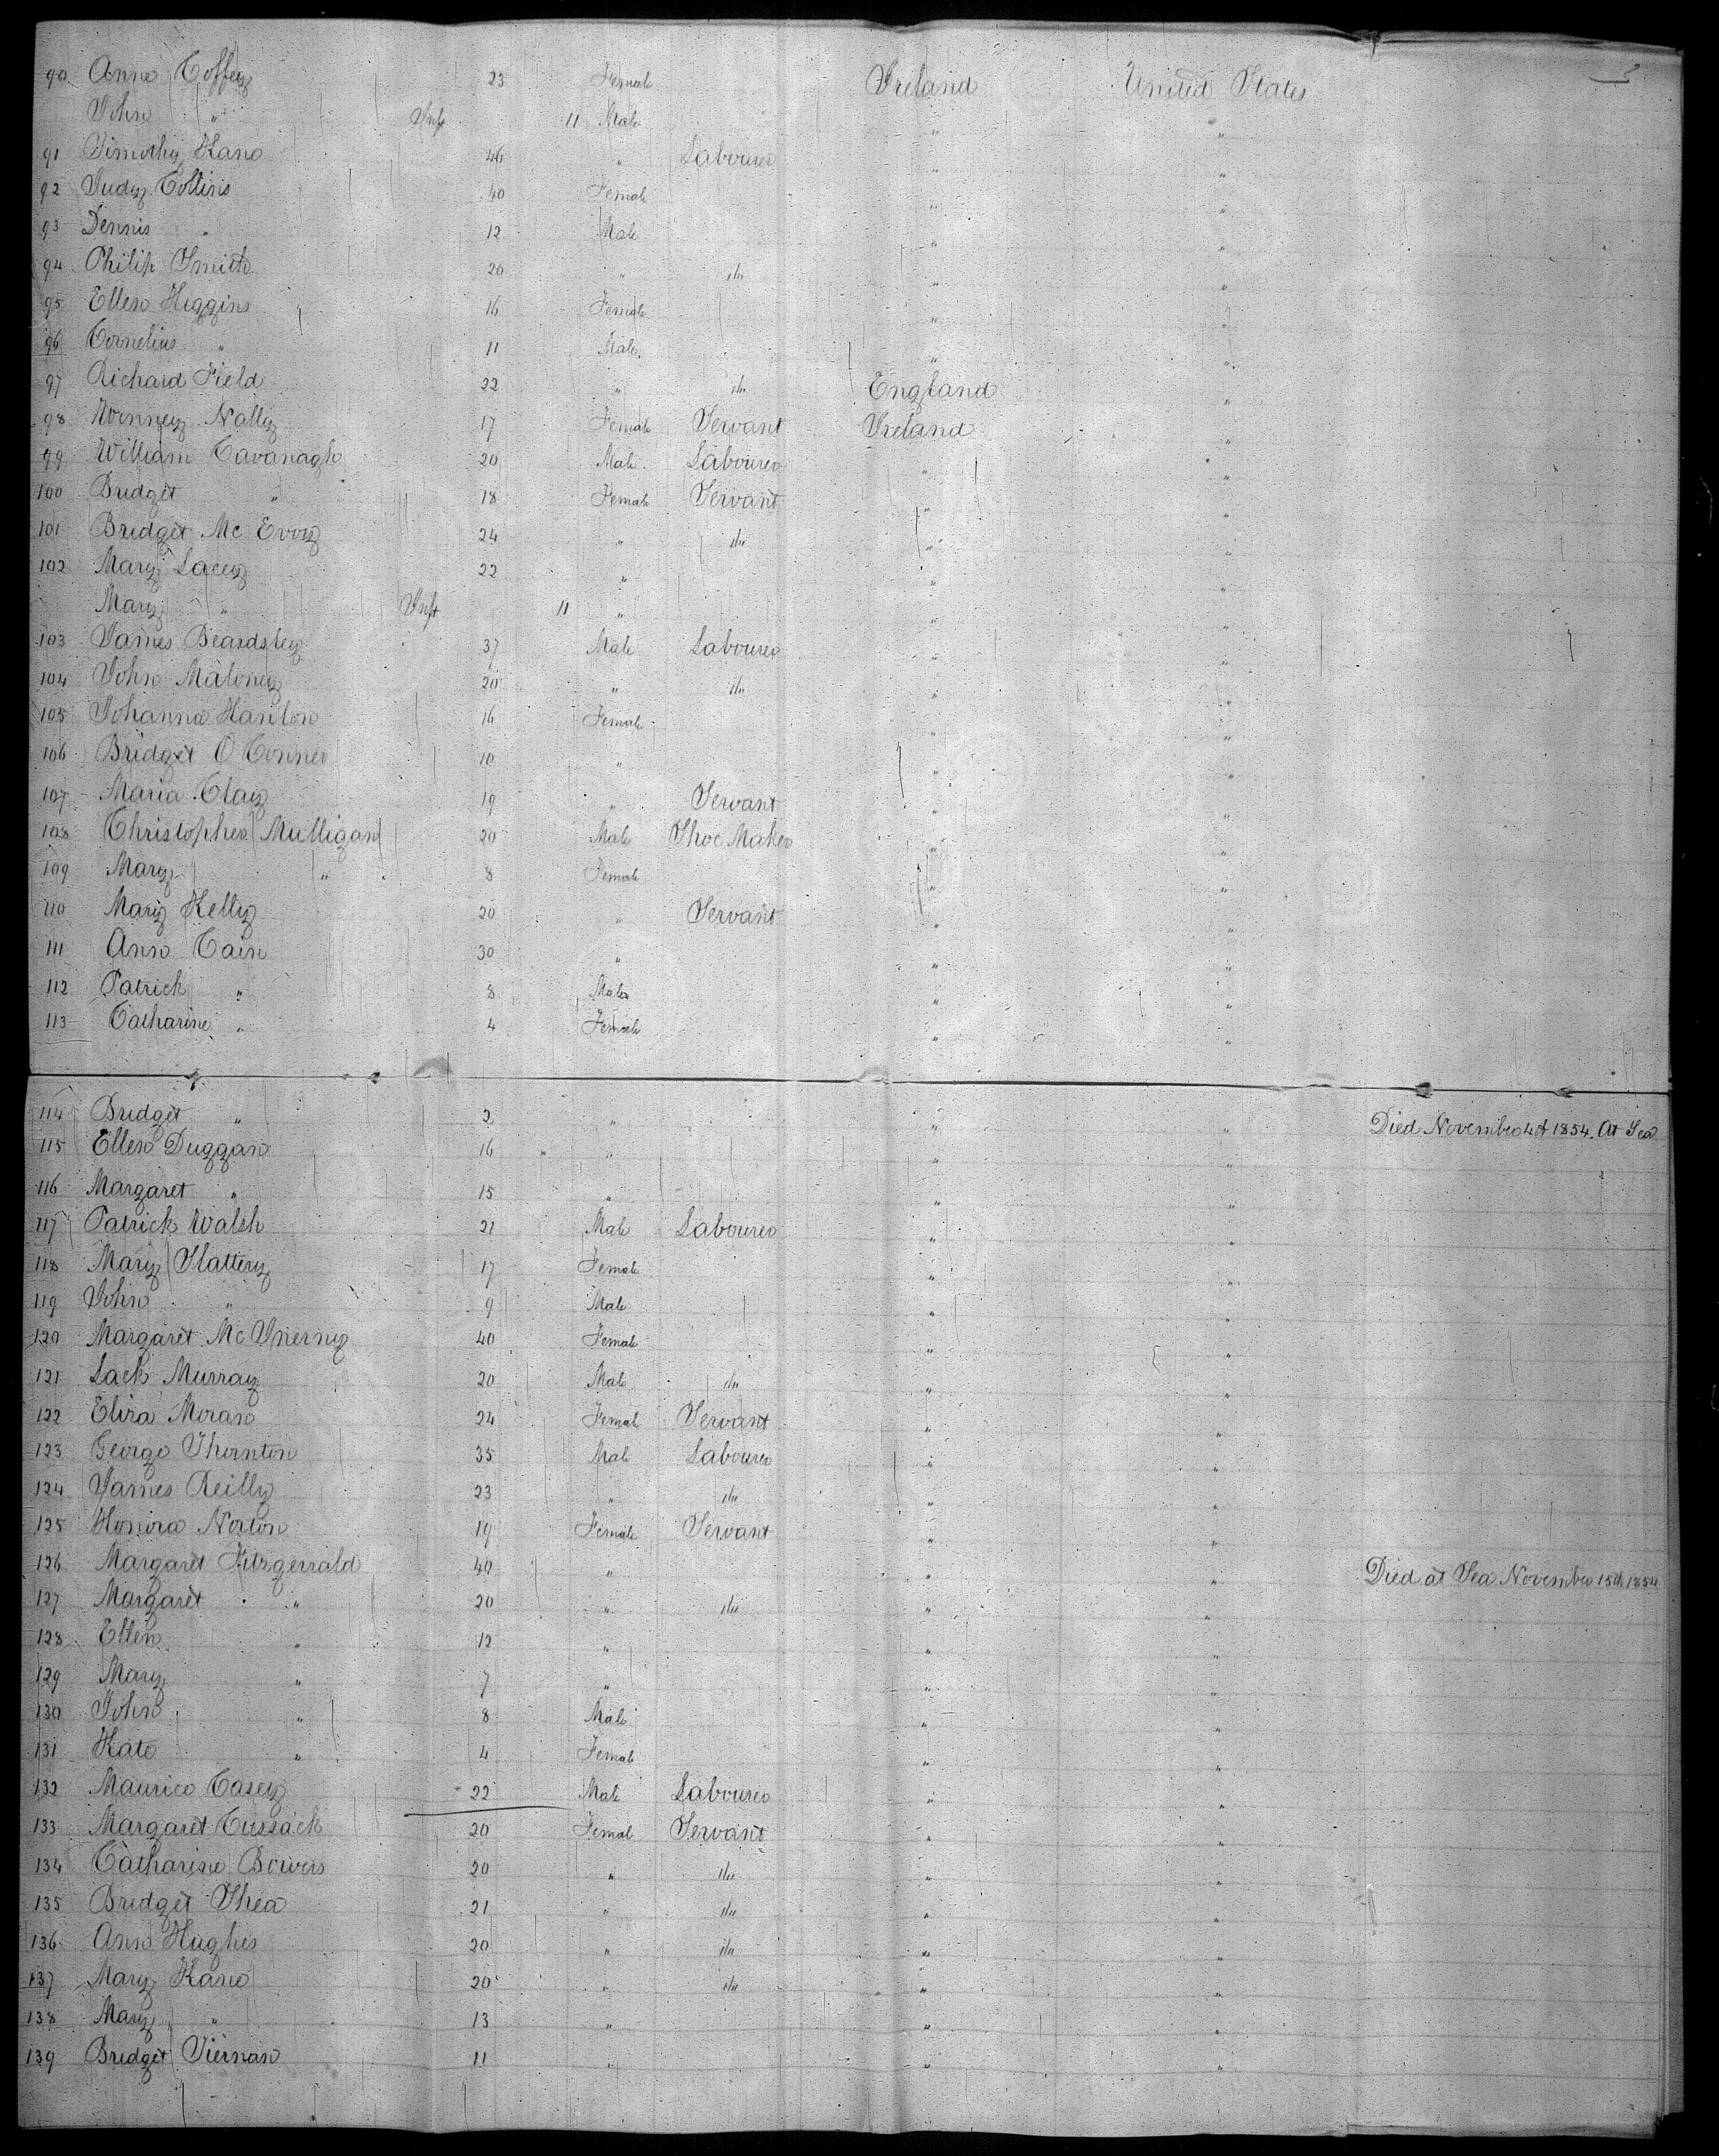 3
90 Anne Coffey 23 Female Ireland United States
John " Inft 11 Male " "
91 Timothy Kane 46 " Labourer " "
92 Judy Collins 40 Female " "
93 Dennis " 12 Male " "
94 Philip Smith 20 " do " "
95 Ellen Higgins 16 Female " "
96 Cornelius " 11 Male " "
97 Richard Field 22 " do England "
98 Winney Nally 17 Female Servant Ireland "
99 William Cavanagh 20 Male Labourer " "
100 Bridget " 18 Female Servant " "
101 Bridget Mc Evoy 24 " do " "
102 Mary Lacey 22 " " "
Mary " Inft 11 " " "
103 James Beardsley 37 Male Labourer " "
104 John Maloney 20 " do " "
105 Johanna Hanlon 16 Female " "
106 Bridget O Conner 10 " " "
107 Maria Clay 19 " Servant " "
108 Christopher Mulligan 20 Male Shoe Maker " "
109 Mary " 8 Female " "
110 Mary Kelly 20 " Servant " "
111 Ann Cain 30 " " "
112 Patrick " 8 Male " "
113 Catharine " 4 Female " "
114 Bridget " 2 " " " Died November 4th 1854. At Sea
115 Ellen Duggan 16 " " "
116 Margaret " 15 " " "
117 Patrick Walsh 21 Male Labourer " "
118 Mary Slattery 17 Female " "
119 John " 9 Male " "
120 Margaret Mc Inerny 40 Female " "
121 Lack Murray 20 Male do " "
122 Eliza Moran 24 Female Servant " "
123 George Thornton 35 Male Labourer " "
124 James Reilly 23 " do " "
125 Honora Norton 19 Female Servant " "
126 Margaret Fitzgerrald 40 " " " Died at Sea November 15th 1854
127 Margaret " 20 " do " "
128 Ellen " 12 " " "
129 Mary " 7 " " "
130 John " 8 Male " "
131 Kate " 4 Female " "
132 Maurice Casey 22 Male Labourer " "
133 Margaret Cussack 20 Female Servant " "
134 Catharine Bowers 20 " do " "
135 Bridget Shea 21 " do " "
136 Ann Hughes 20 " do " "
137 Mary Kane 20 " do " "
138 Mary " 13 " " "
139 Bridget Tiernan 11 " " "